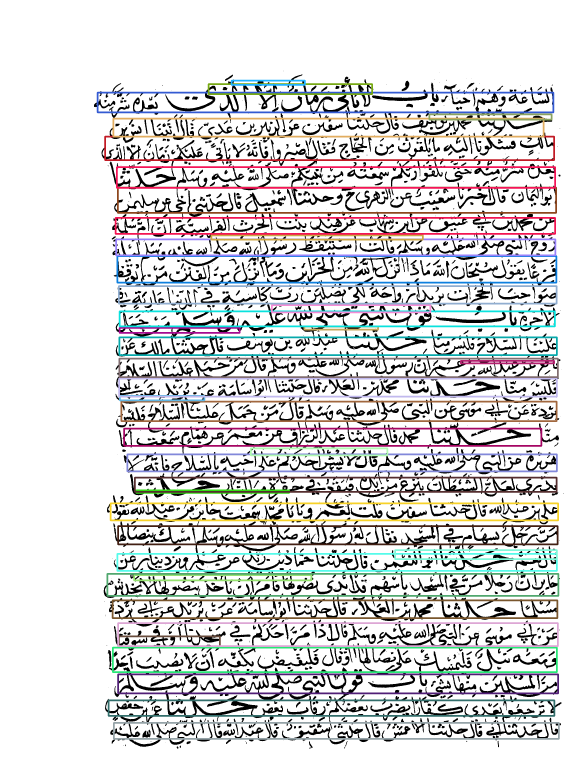 الساعة وهم احياء باب لا ياتي زمان الا الذي بعده شر منه
حدثنا محمد بن يوسف قال حدثنا سفين عن الزبير بن عدي قال اتينا انس بن
مالك فشكونا اليه ما يلقون من الحجاج فقال اصبروا فانه لا ياتي عليكم زمان الا الذي
بعده شر منه حتى تلقوا ربكم سمعته من نبيكم صلى الله عليه وسلم حدثنا
ابو اليمان قال اخبرنا شعيب عن الزهري ح وحدثنا اسمعيل قال حدثني اخي عن سليمن
عن محمد بن ابي عتيق عن ابن شهاب عن هند بنت الحرث الفراسية ان ام سلمة
زوج النبي صلى الله عليه وسلم قالت استيقظ رسول الله صلى الله عليه وسلم ليلة
فزعا يقول سبحان الله ماذا انزل الله من الخزاين وما انزل من الفتن من يوقظ
صواحب الحجرات يريد ازواجه لكي يصلين رب كاسية في الدنيا عارية في
الاخرة باب قول النبي صلى الله عليه وسلم من حمل
علينا السلاح فليس منا حدثنا عبد الله بن يوسف قال حدثنا مالك عن
نافع عن عبد الله بن عمر ان رسول الله صلى الله عليه وسلم قال من حمل علينا السلاح
فليس منا حدثنا محمد بن العلاء قال حدثنا ابو اسامة عن بريد عن ابي
بردة عن ابي موسى عن النبي صلى الله عليه وسلم قال من حمل علينا السلاح فليس
منا حدثنا محمد قال حدثنا عبد الرزاق عن معمر عن همام سمعت ابا
هريرة عن النبي صلى الله عليه وسلم قال لا يشير احدكم على اخيه بالسلاح فانه لا
يدري لعل الشيطان ينزع من يده فيقع في حفرة من النار حدثنا
علي بن عبد الله قال حدثنا سفين قلت لعمرو يا ابا محمد سمعت جابر بن عبد الله يقول
مر رجل بسهام في المسجد فقال له رسول الله صلى الله عليه وسلم امسك بنصالها
قال نعم حدثنا ابو النعمن قال حدثنا حماد بن زيد عن عمرو بن دينار عن
جابر ان رجلا مر في المسجد باسهم قد ابدى نصولها فامر ان ياخذ بنصولها لا يخدش
مسلما حدثنا محمد بن العلاء قال حدثنا ابو اسامة عن بريد عن ابي بردة
عن ابي موسى عن النبي صلى الله عليه وسلم قال اذا مر احدكم في مسجدنا او في سوقنا
ومعه نبل فليمسك على نصالها او قال فليقبض بكفه ان لا يصيب احدا
من المسلمين منها شيء باب قول النبي صلى الله عليه وسلم
لا ترجعوا بعدي كفارا يضرب بعضكم رقاب بعض حدثنا عمر بن حفص
قال حدثني ابي قال حدثنا الاعمش قال حدثني شقيق قال عبد الله قال النبي صلى الله عليه